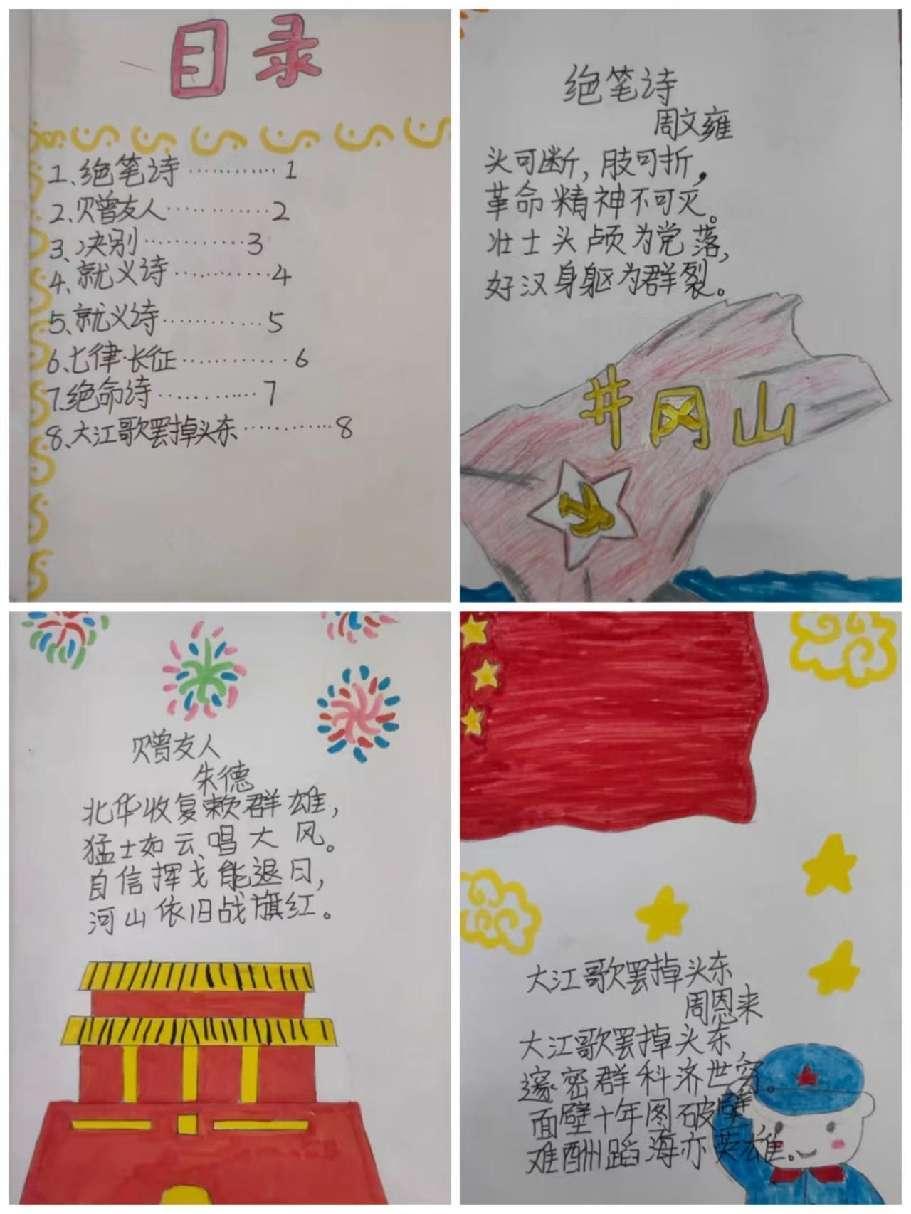 目录
1、绝笔诗…………1
2、赠友人…………2
3、决别…………3
4、就义诗…………4
5、就义诗…………5
6、七律·长征…………6
7、绝命诗…………7
8、大江歌罢掉头东…………8
绝笔诗
周文雍
头可断，肢可折，
革命精神不可灭。
壮士头颅为党落，
好汉身躯为群裂。
井冈山
赠友人
朱德
北华收复赖群雄，
猛士如云唱大风。
自信挥戈能退日，
河山依旧战旗红。
大江歌罢掉头东
周恩来
大江歌罢掉头东，
邃密群科济世穷。
面壁十年图破壁，
难酬蹈海亦英雄。